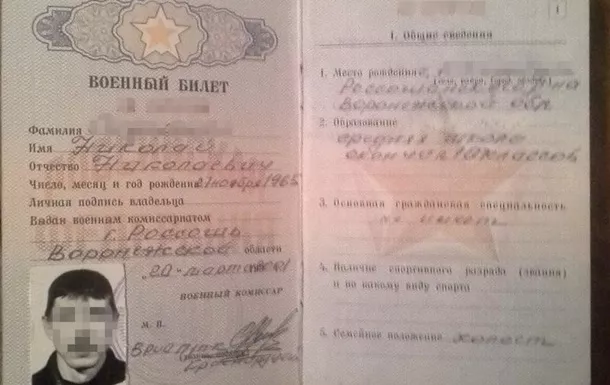 ВОЕННЫЙ БИЛЕТ
Фамилия
Имя Николай
Отчество Николаевич
Число, месяц и год рождения 21 ноября 1965
Личная подпись владельца
Выдан военным комиссариатом
г. Россошь
Воронежской области
"20" марта
ВОЕННЫЙ КОМИССАР
М. П.
1
I. Общие сведения
1. Место рождения
(село, город
района
Воронежской обл
2. Образование
средняя школа
окончил 10 классов
3. Основная гражданская специальность
не имеет
4. Наличие спортивного разряда (звания)
и по какому виду спорта
5. Семейное положение холост